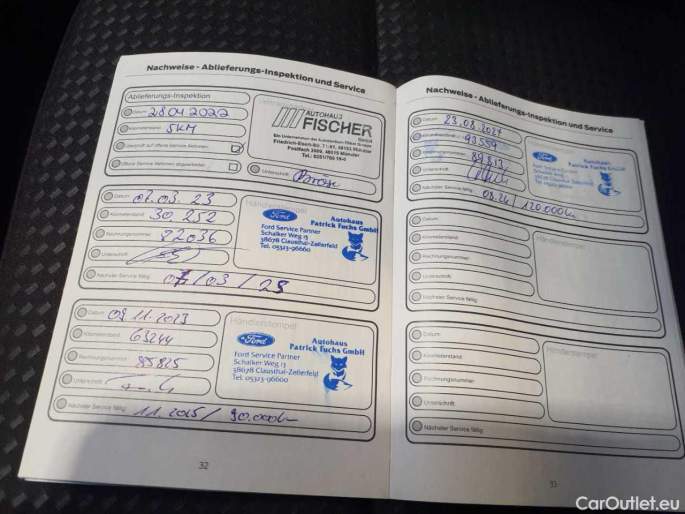 Nachweise - Ablieferungs-Inspektion und Service
Ablieferungs-Inspektion
Datum 28.04.2022
Kilometerstand 5KM
Geprüft auf offene Service-Aktionen
Offene Service-Aktionen abgearbeitet
AUTOHAUS
FISCHER
GmbH
Ein Unternehmen der
Gruppe
48153 Münster
Postfach 48015 Münster
Unterschrift
Datum 07.03.23
Kilometerstand 30.252
Rechnungsnummer 82036
Unterschrift
Nächster Service fällig 07/03/25
Händlerstempel
Ford
Autohaus
Patrick Fuchs GmbH
Ford Service Partner
Schalker Weg 13
38678 Clausthal-Zellerfeld
Tel. 05323-96660
Datum 09.11.2023
Kilometerstand 63244
Rechnungsnummer 85825
Unterschrift
Nächster Service fällig 11.2025/90.000km
Händlerstempel
Ford
Autohaus
Patrick Fuchs GmbH
Ford Service Partner
Schalker Weg 13
38678 Clausthal-Zellerfeld
Tel. 05323-96600
32
Nachweise - Ablieferungs-Inspektion und Service
Datum 23.08.2024
Kilometerstand 93559
89813
Unterschrift
Nächster Service fällig 08.26/120.000km
Ford
Autohaus
Patrick Fuchs GmbH
Datum
Kilometerstand
Rechnungsnummer
Unterschrift
Nächster Service fällig
Händlerstempel
Datum
Kilometerstand
Rechnungsnummer
Unterschrift
Nächster Service fällig
Händlerstempel
CarOutlet.eu